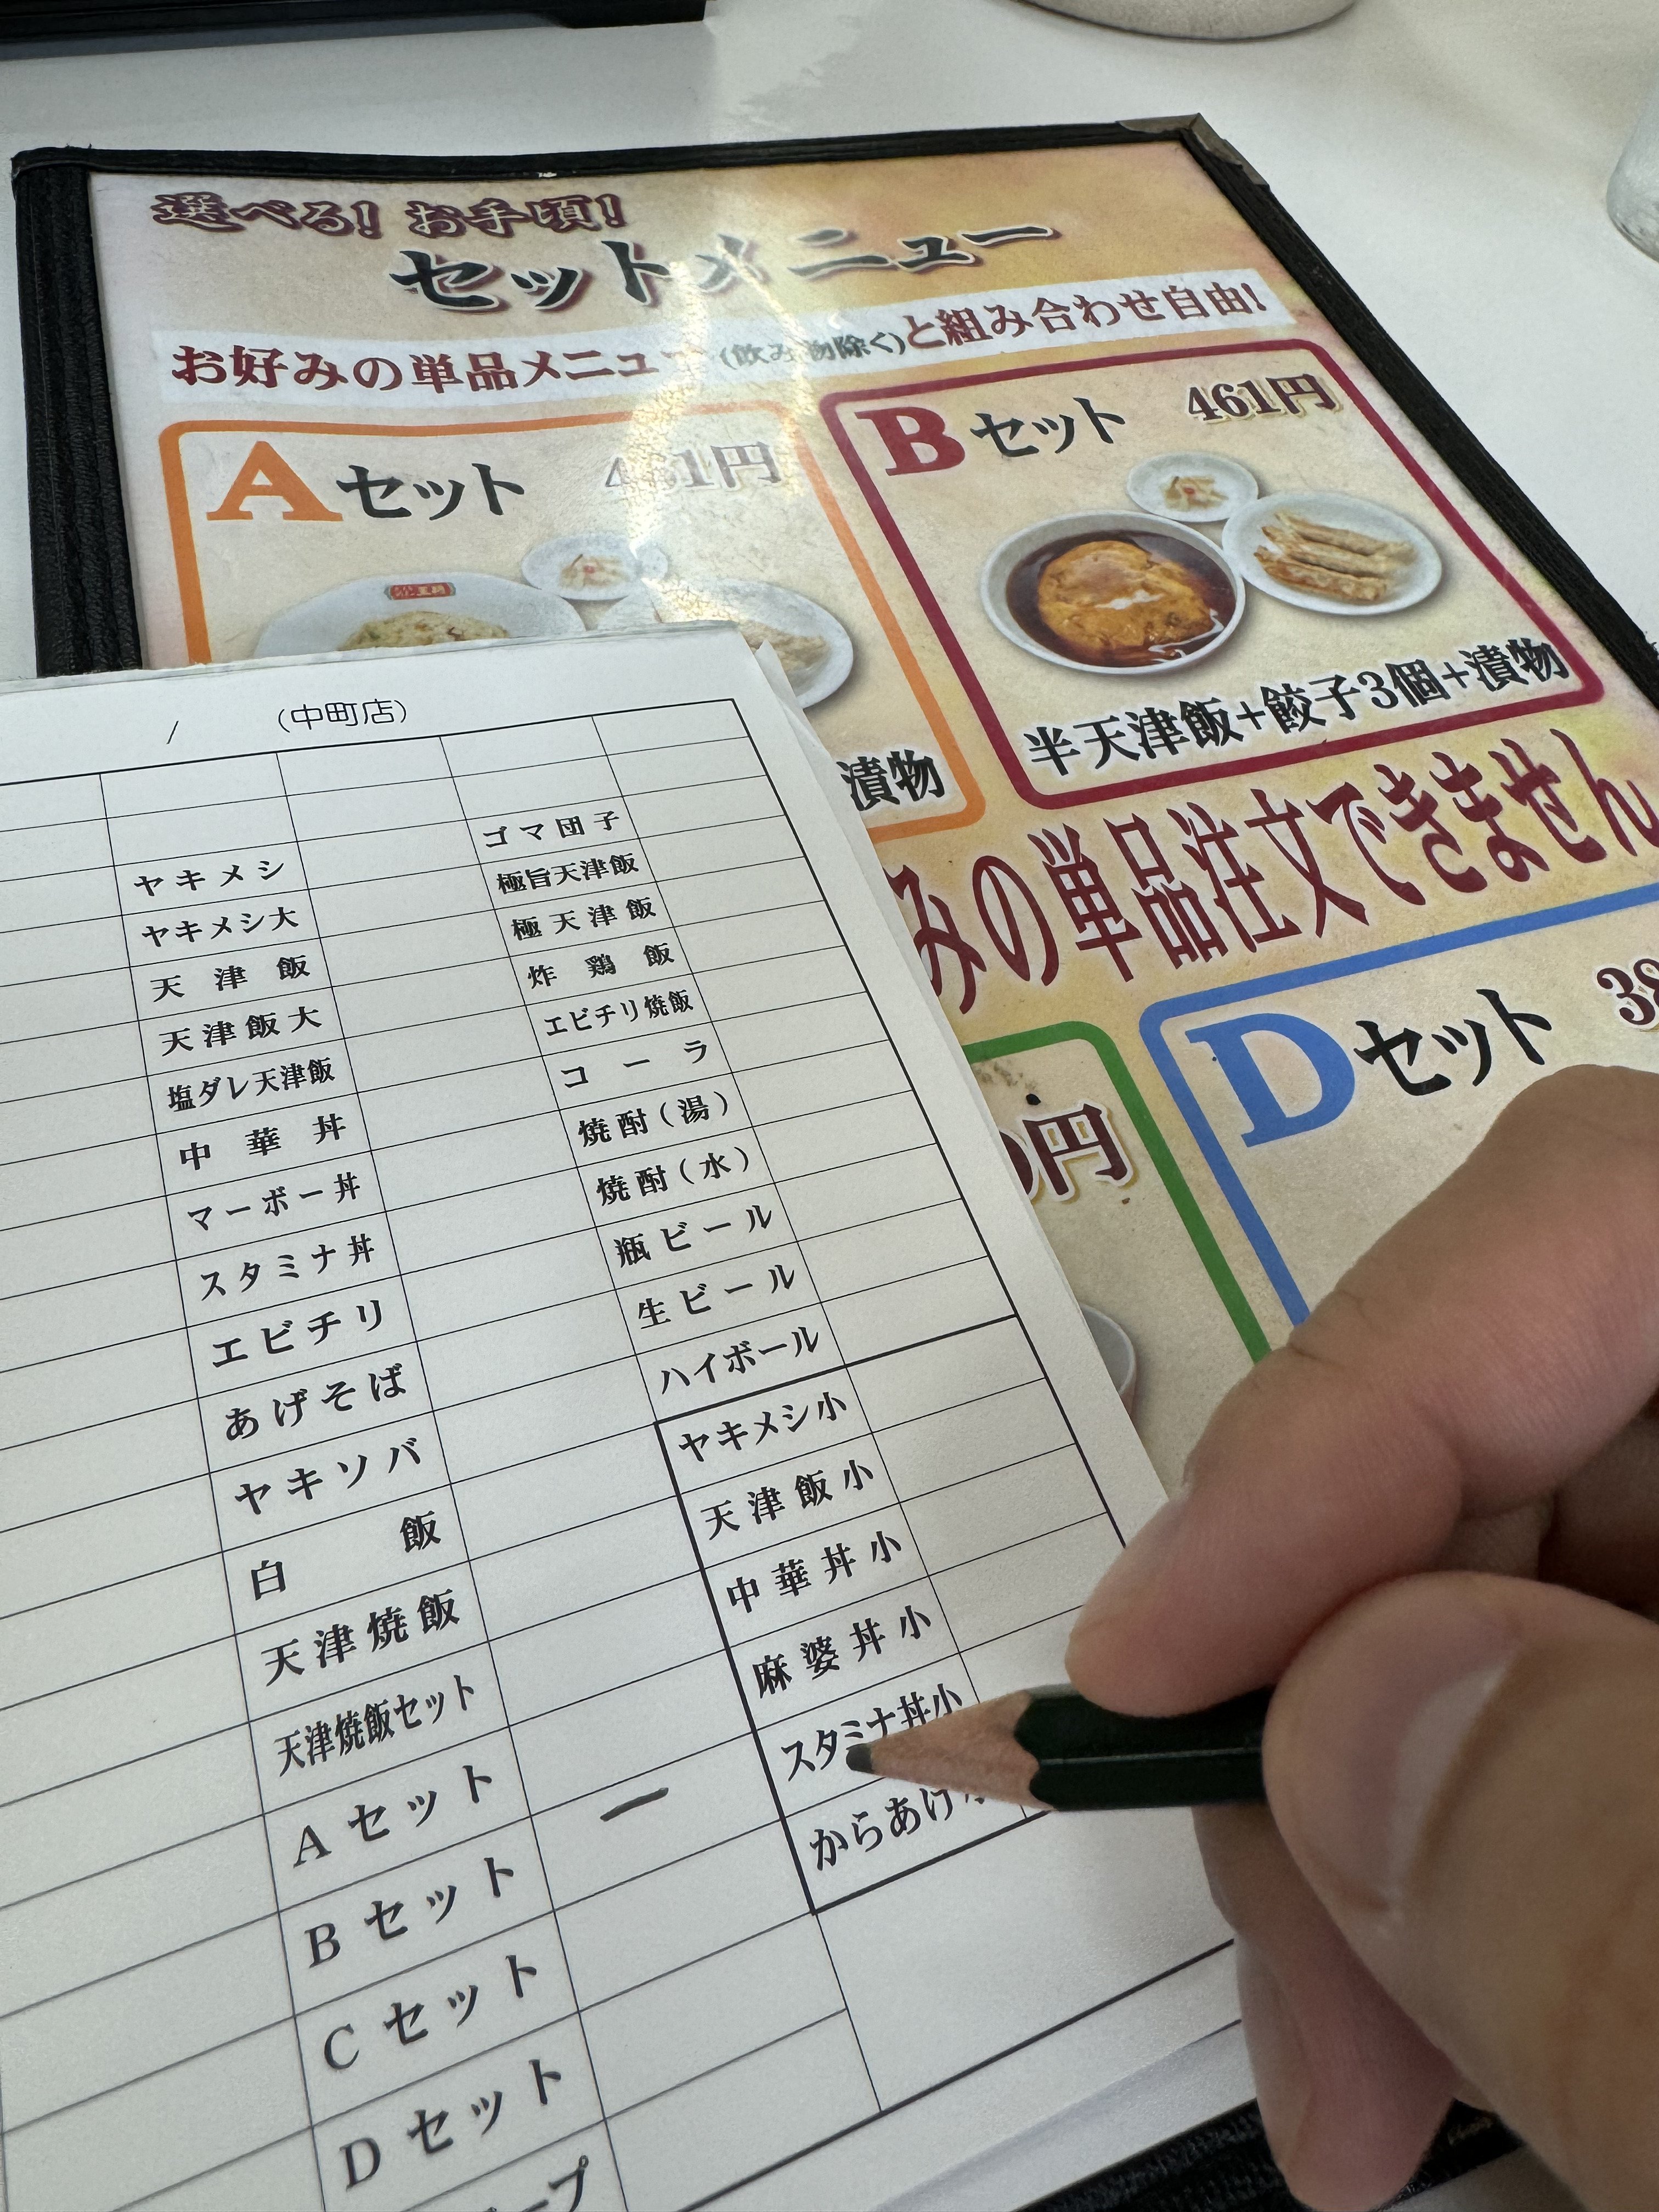 選べる! お手頃!
セットメニュー
お好みの単品メニュー(飲み物除く)と組み合わせ自由!
Aセット 461円
漬物
Bセット 461円
半天津飯+餃子3個+漬物
みの単品注文できません
円
Dセット 38
/ (中町店)
ヤキメシ
ヤキメシ大
天津飯
天津飯大
塩ダレ天津飯
中華丼
マーボー丼
スタミナ丼
エビチリ
あげそば
ヤキソバ
白飯
天津焼飯
天津焼飯セット
Aセット 一
Bセット
Cセット
Dセット
ープ
ゴマ団子
極旨天津飯
極天津飯
炸鶏飯
エビチリ焼飯
コーラ
焼酎(湯)
焼酎(水)
瓶ビール
生ビール
ハイボール
ヤキメシ小
天津飯小
中華丼小
麻婆丼小
スタミナ丼小
からあげ